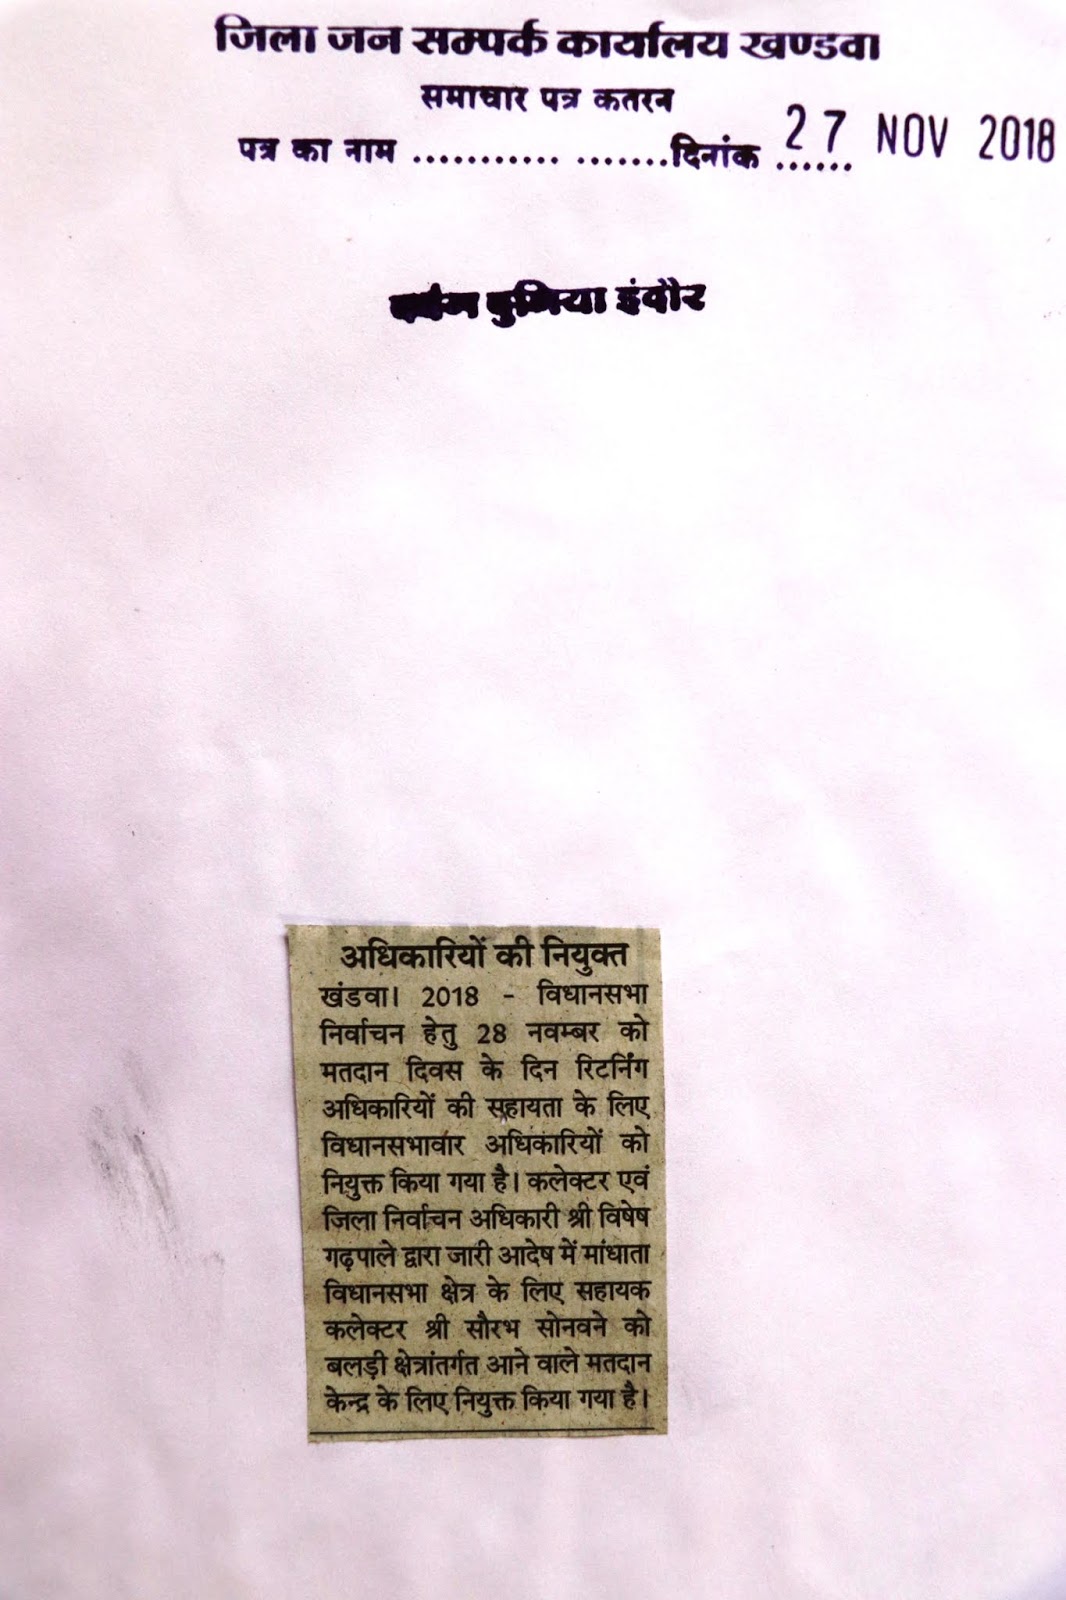 जिला जन सम्पर्क कार्यालय खण्डवा
समाचार पत्र कतरन
पत्र का नाम ........... .......दिनांक ...... 27 NOV 2018
दुनिया इंदौर
अधिकारियों की नियुक्त
खंडवा। 2018 - विधानसभा
निर्वाचन हेतु 28 नवम्बर को
मतदान दिवस के दिन रिटर्निंग
अधिकारियों की सहायता के लिए
विधानसभावार अधिकारियों को
नियुक्त किया गया है। कलेक्टर एवं
जिला निर्वाचन अधिकारी श्री विषेष
गढ़पाले द्वारा जारी आदेष में मांधाता
विधानसभा क्षेत्र के लिए सहायक
कलेक्टर श्री सौरभ सोनवने को
बलड़ी क्षेत्रांतर्गत आने वाले मतदान
केन्द्र के लिए नियुक्त किया गया है।